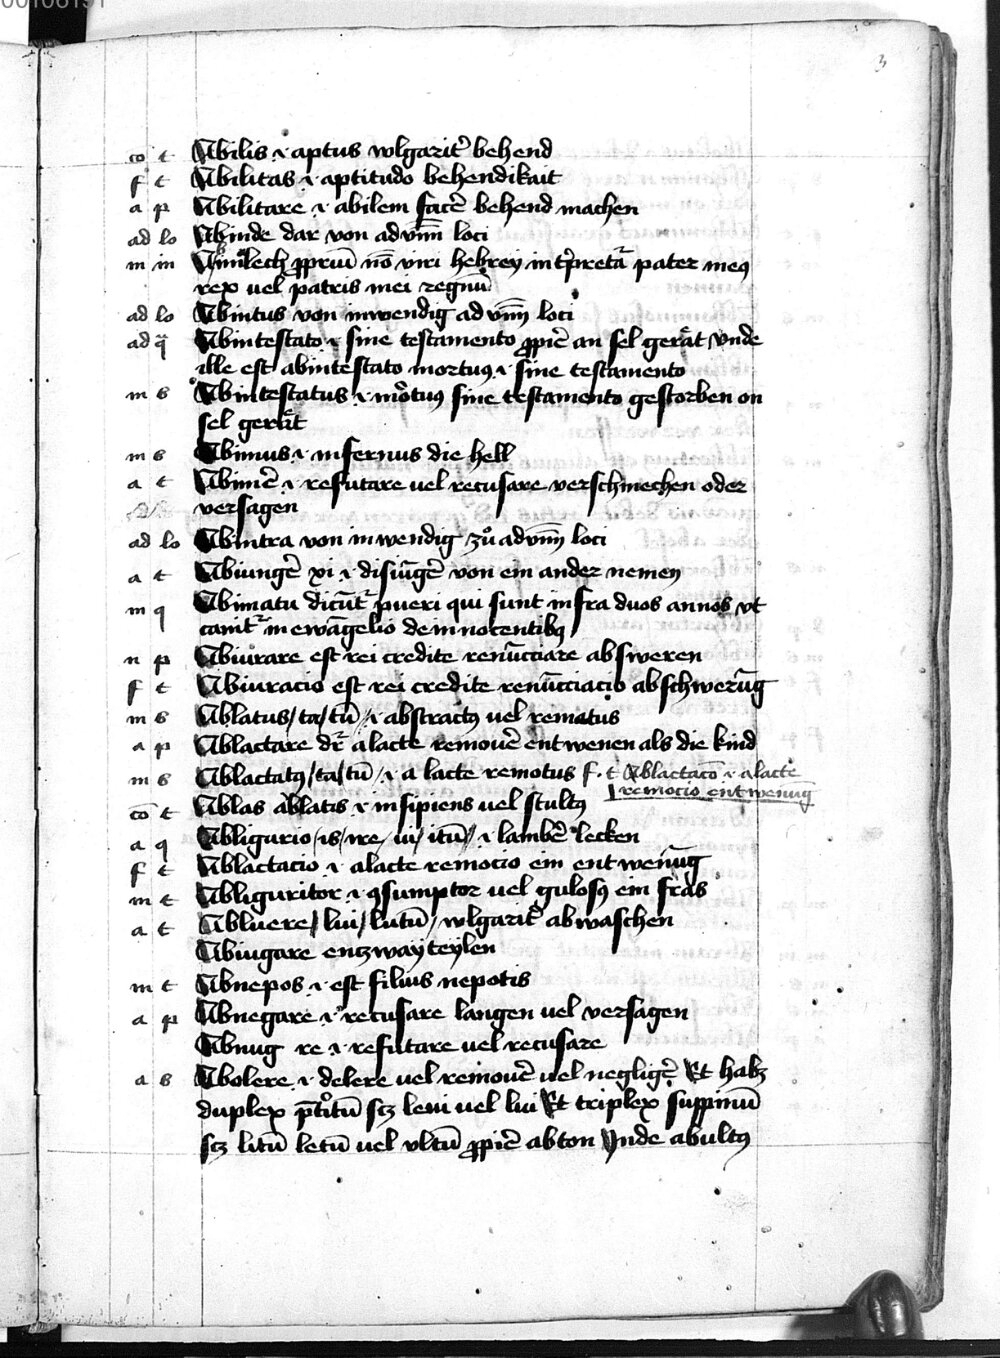 3
co t Abilis .i. aptus wlgarit̄ behend
f t Abilitas .i. aptitudo behendikait
a p Abilitare .i. abilem facē behend machen
ad lo Abinde dar von aduīm loci
m in Abimlech ꝓpriū nō viri hebrey intp̄retat̄ pater meꝯ
rex vel patris mei regnū
ad lo Abintus von inwendig aduīm loci
ad q̄ Abintestato .i. sine testamento ꝓpiē an sel gerät vnde
ille est abintestato mortuꝯ .i. sine testamento
m s Abintestatus .i. mortuꝯ sine testamento gestorben on
sel gerät
m s Abimus .i. infernus die hell
a t Abinuē .i. refutare uel recusare verschmechen oder
versagen
ad lo Abintra von inwendig zuͦ aduīm loci
a t Abiungē xi .i. disiūgē von ein ander nemen
m q Abimatu dicūt̄ pueri qui sunt infra duos annos vt
canit̄ in ewāgelio de innocentibꝯ
n p Abiurare est rei credite renūcciare absweren
f t Abiuracio est rei credite renūcciacio abschwerūg
m s Ablatus/ta/tū/ .i. abstractꝯ uel remotus
a p Ablactare dr̄ alacte remouē entwenen als die kind
m s Ablactatꝯ/ta/tū/ .i. a lacte remotus f. t Ablactacō .i. alacte
remocio entwenūg
cō t Ablas ablatis .i. insipiens uel stultꝯ
a q Abligurio/is/ire/iui/itū/ .i. lambē lecken
f t Ablactacio .i. alacte remocio ein entwenūg
m t Abliguritor .i. ꝯsumptor uel gulosꝯ ein fräs
a t Abluere/lui/lutū/ wlgarit̄ abwaschen
Abiugare entzway teylen
m t Abnepos .i. est filius nepotis
a p Abnegare .i. recusare laugen uel versagen
Abnug re .i. refutare uel recusare
a s Abolere .i. delere uel remouē uel negligē Et habꝫ
duplex p̄titū scꝫ leui uel lui Et triplex suppinū
scꝫ litū letū uel vltū ꝓpiē abton Inde abultꝯ